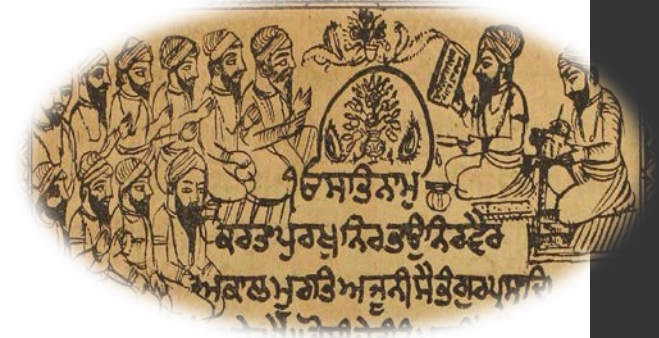 ੴ ਸਤਿਨਾਮੁ
ਕਰਤਾਪੁਰਖੁਨਿਰਭਉਨਿਰਵੈਰ
ਅਕਾਲਮੂਰਤਿਅਜੂਨੀਸੈਭੰਗੁਰਪ੍ਰਸਾਦਿ